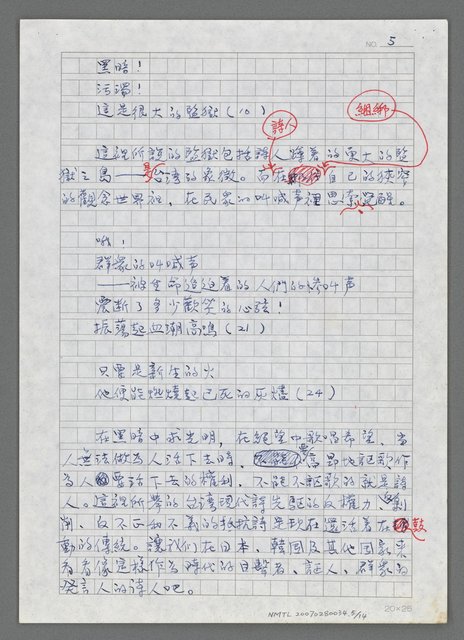 NO. 5
黑暗！
污濁！
這是很大的監獄（10）
詩人
綑綁
這裡所說的監獄包括詩人 的東大的監
獄之島——是台灣的象徵。而在 自己的狹窄
的觀念世界裡，在民眾的叫喊声裡思索覺醒。
哦！
群眾的叫喊声
——被生命迫迫着的人們的 叫声
震斷了多少歡笑的心弦！
振蕩起血潮高鳴（21）
只要是新生的火
他便能燃燒起已死的灰燼（24）
在黑暗中求光明，在絕望中歌唱希望，當
人無法做為人活下去時， 高昂地謳歌作
為人要活下去的權利，不能不謳歌的就是詩
人。這裡所舉的台灣現代詩先驅的反權力、
削、反不正和不義的抵抗詩是現在還活着在 鼓
動的傳統。讓我們在日本、韓國及其他國家來
看看像這樣作為時代的目擊者、証人、群眾的
發言人的詩人吧。
20×25
NMTL 20070280034 5/14